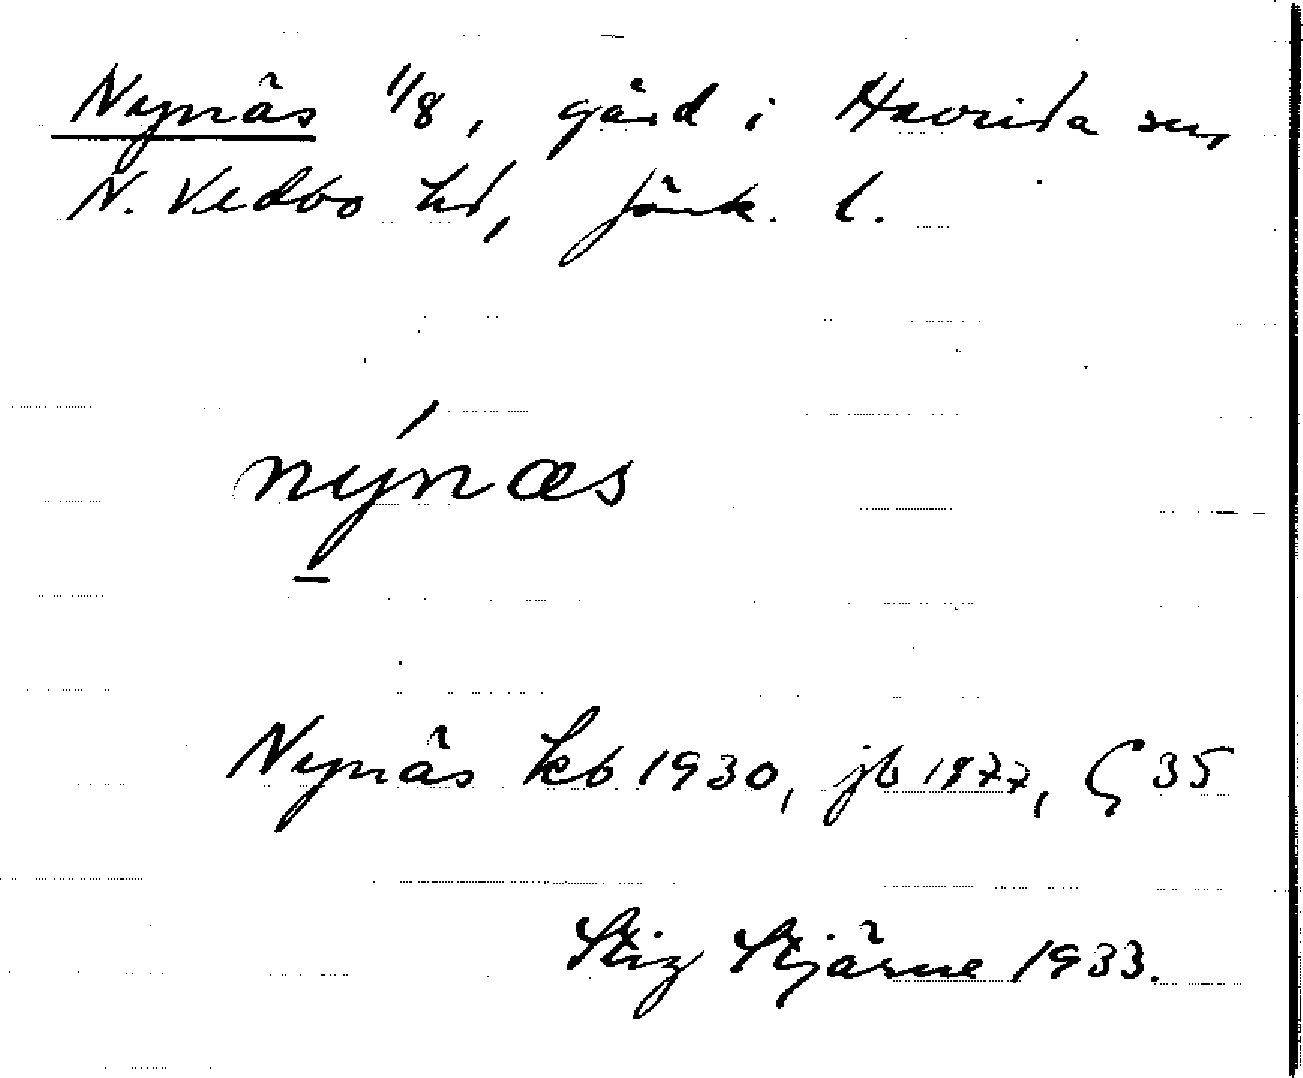 Nynäs 1/8, gård i Haurida sn,
N. Vedbo hd, Jönk. l.
nýnæs
Nynäs kb 1930, jb 1877, G 35
Stig Stjärne 1933.